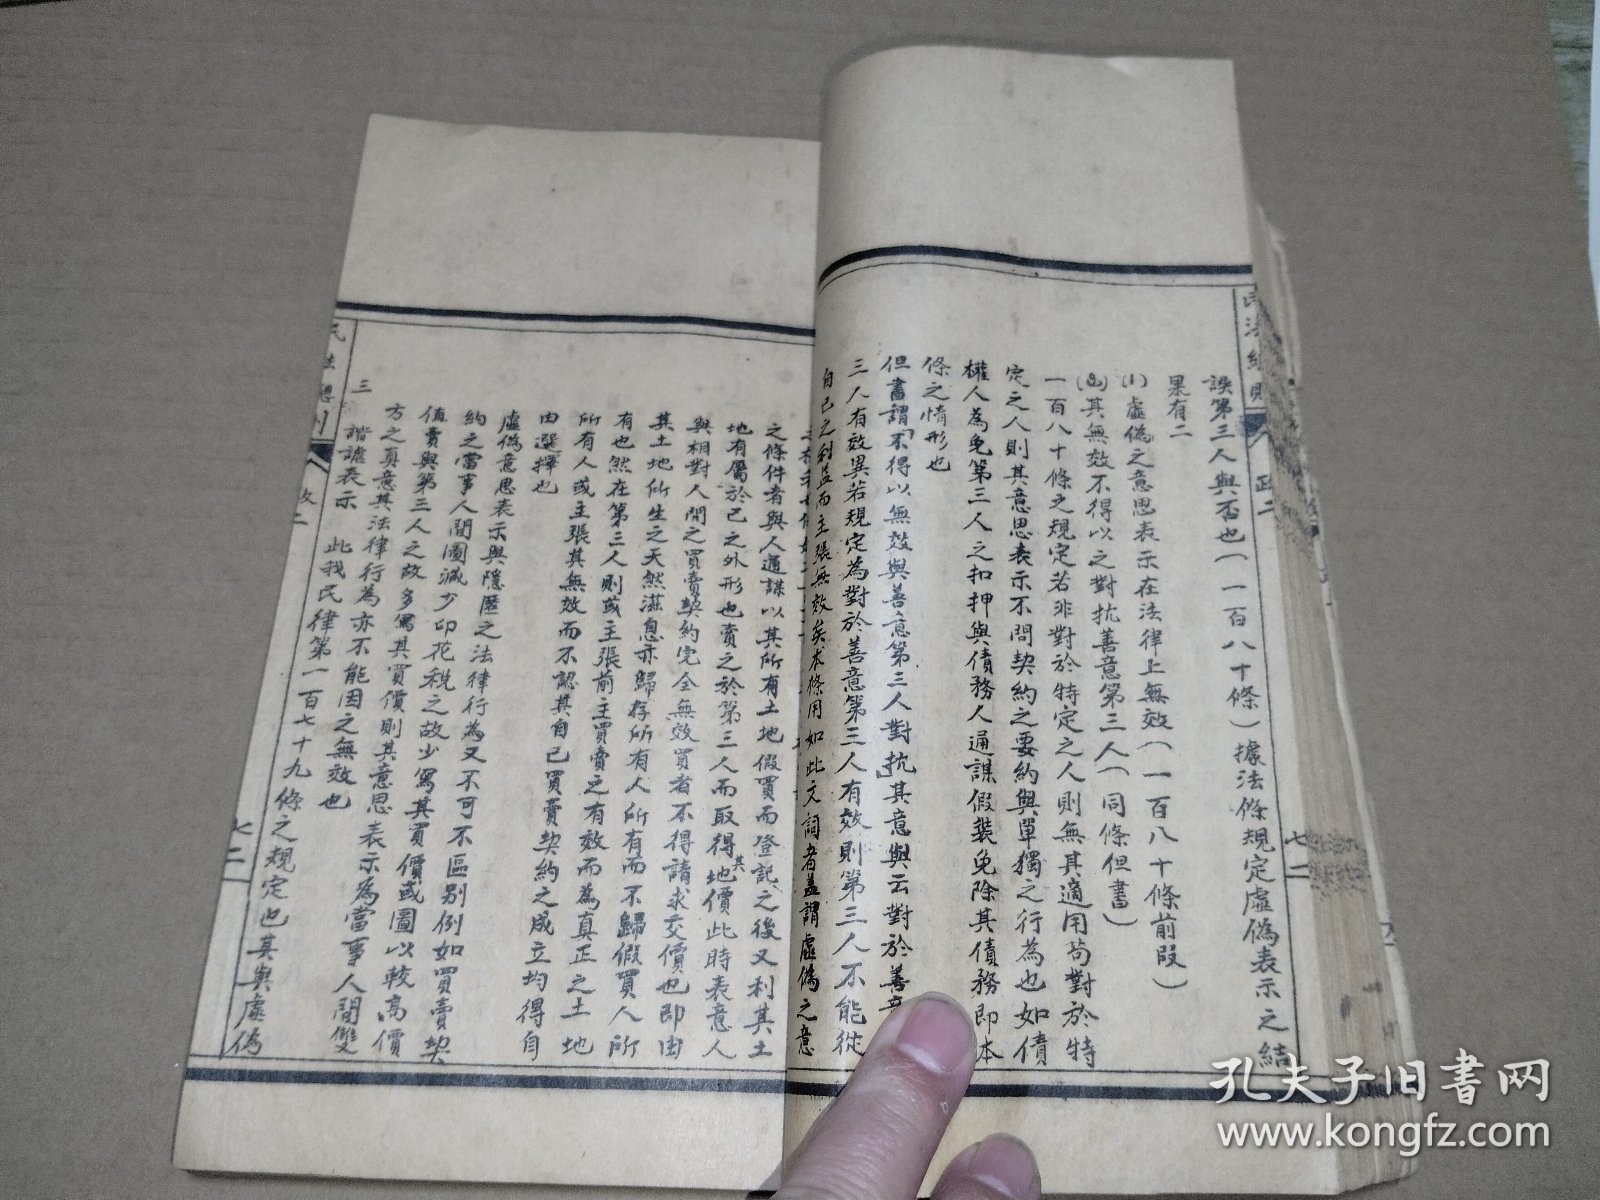 誤第三人與否也(一百八十條)據法條規定虛偽表示之結
果有二
(1)虛偽之意思表示在法律上無效(一百八十條前段)
其無效不得以之對抗善意第三人(同條但書)
一百八十條之規定若非對於特定之人則無其適用苟對於特
定之人則其意思表示不問契約之要約與單獨之行為也如債
權人為免第三人之扣押與債務人通謀假裝免除其債務即本
條之情形也
但書謂「不得以無效與善意第三人對抗」其意與云對於善
三人有效異若規定為對於善意第三人有效則第三人不能從
自己之利益而主張無效矣本條用如此文詞者蓋謂虛偽之意
之條件者與人通謀以其所有土地假買而登記之後又利其土
地有屬於己之外形也賣之於第三人而取得其地價此時表意人
與相對人間之買賣契約完全無效買者不得請求交價也即由
其土地所生之天然滋息亦歸存所有人所有而不歸假買人所
有也然在第三人則或主張前主買賣之有效而為真正之土地
所有人或主張其無效而不認其自己買賣契約之成立均得自
由選擇也
虛偽意思表示與隱匿之法律行為又不可不區别例如買賣契
約之當事人間圖減少印花稅之故少寫其買價或圖以較高價
值賣與第三人之故多寫其買價則其意思表示為當事人間雙
方之真意其法律行為亦不能因之無效也
三 諧謔表示 此我民律第一百七十九條之規定也其與虛偽
民法總則
政二
七二
政二
七二
孔夫子旧書网
www.kongfz.com